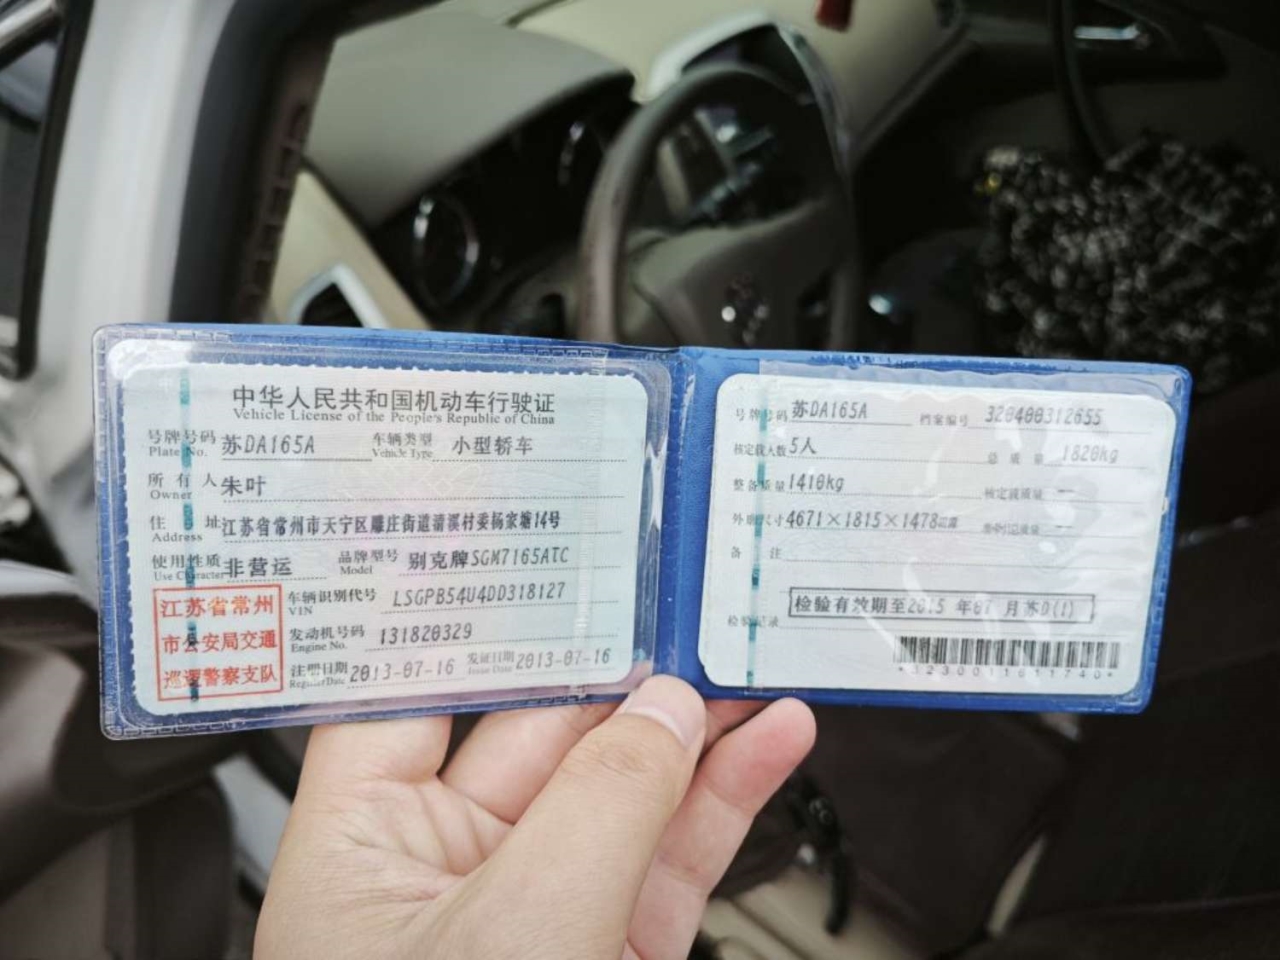 中华人民共和国机动车行驶证
Vehicle License of the People's Republic of China
号牌号码 苏DA165A 车辆类型 小型轿车
Plate No. Vehicle Type
所有人 朱叶
Owner
住址 江苏省常州市天宁区雕庄街道清溪村委杨家塘14号
Address
使用性质 非营运 品牌型号 别克牌SGM7165ATC
Use Character Model
江苏省常州
市公安局交通
巡逻警察支队
车辆识别代号 LSGPB54U4DD318127
VIN
发动机号码 131820329
Engine No.
注册日期 2013-07-16 发证日期 2013-07-16
Register Date Issue Date
号牌号码 苏DA165A 档案编号 320400312655
核定载人数 5人 总质量 1820kg
整备质量 1410kg 核定载质量 —
外廓尺寸 4671×1815×1478 准牵引总质量 —
备注
检验有效期至2015 年07 月苏D(1)
检验记录